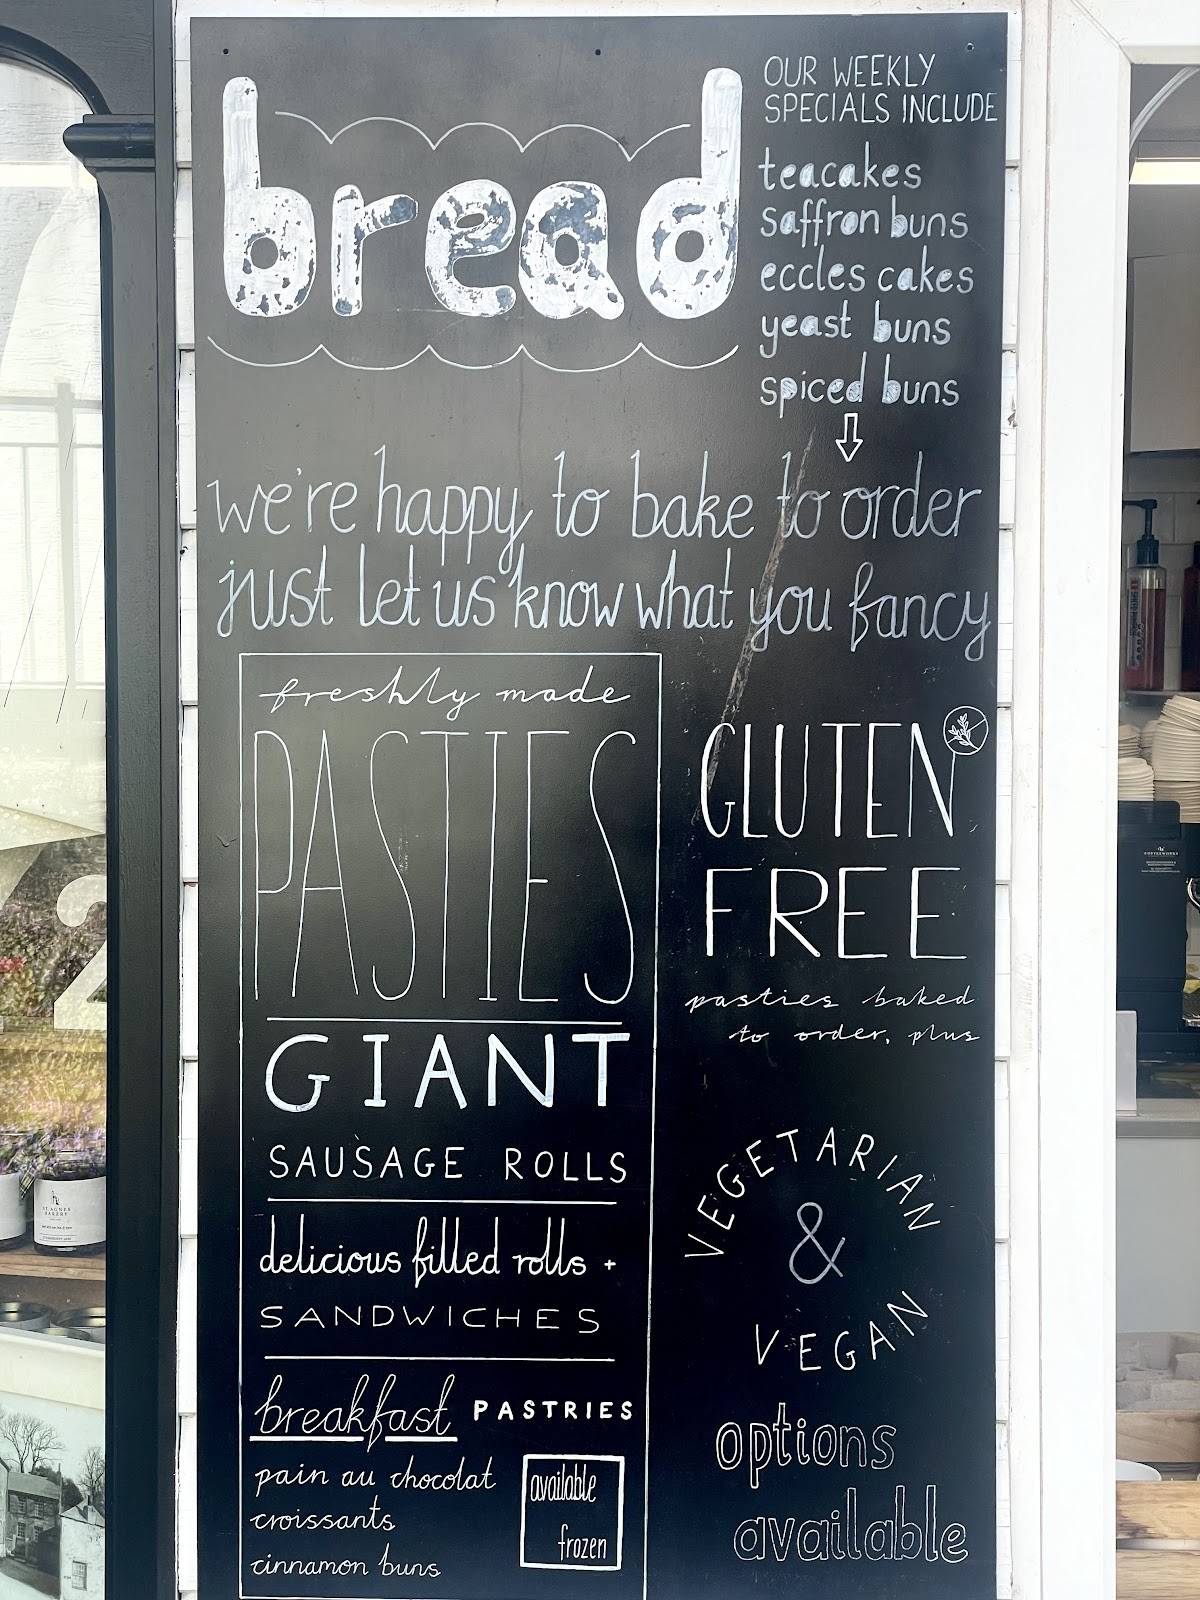 bread
OUR WEEKLY
SPECIALS INCLUDE
teacakes
saffron buns
eccles cakes
yeast buns
spiced buns
we're happy to bake to order
just let us know what you fancy
freshly made
PASTIES
GIANT
SAUSAGE ROLLS
delicious filled rolls +
SANDWICHES
breakfast PASTRIES
pain au chocolat
croissants
cinnamon buns
available
frozen
GLUTEN
FREE
pasties baked
to order, plus
VEGETARIAN
&
VEGAN
options
available
2
ST AGNES
BAKERY